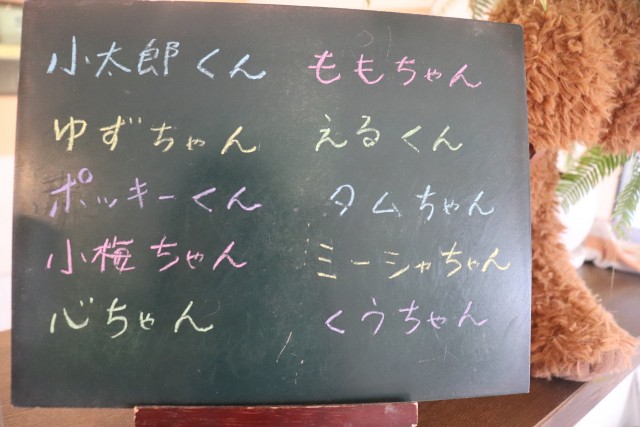 小太郎くん
ゆずちゃん
ポッキーくん
小梅ちゃん
心ちゃん
ももちゃん
えるくん
タムちゃん
ミーシャちゃん
くうちゃん